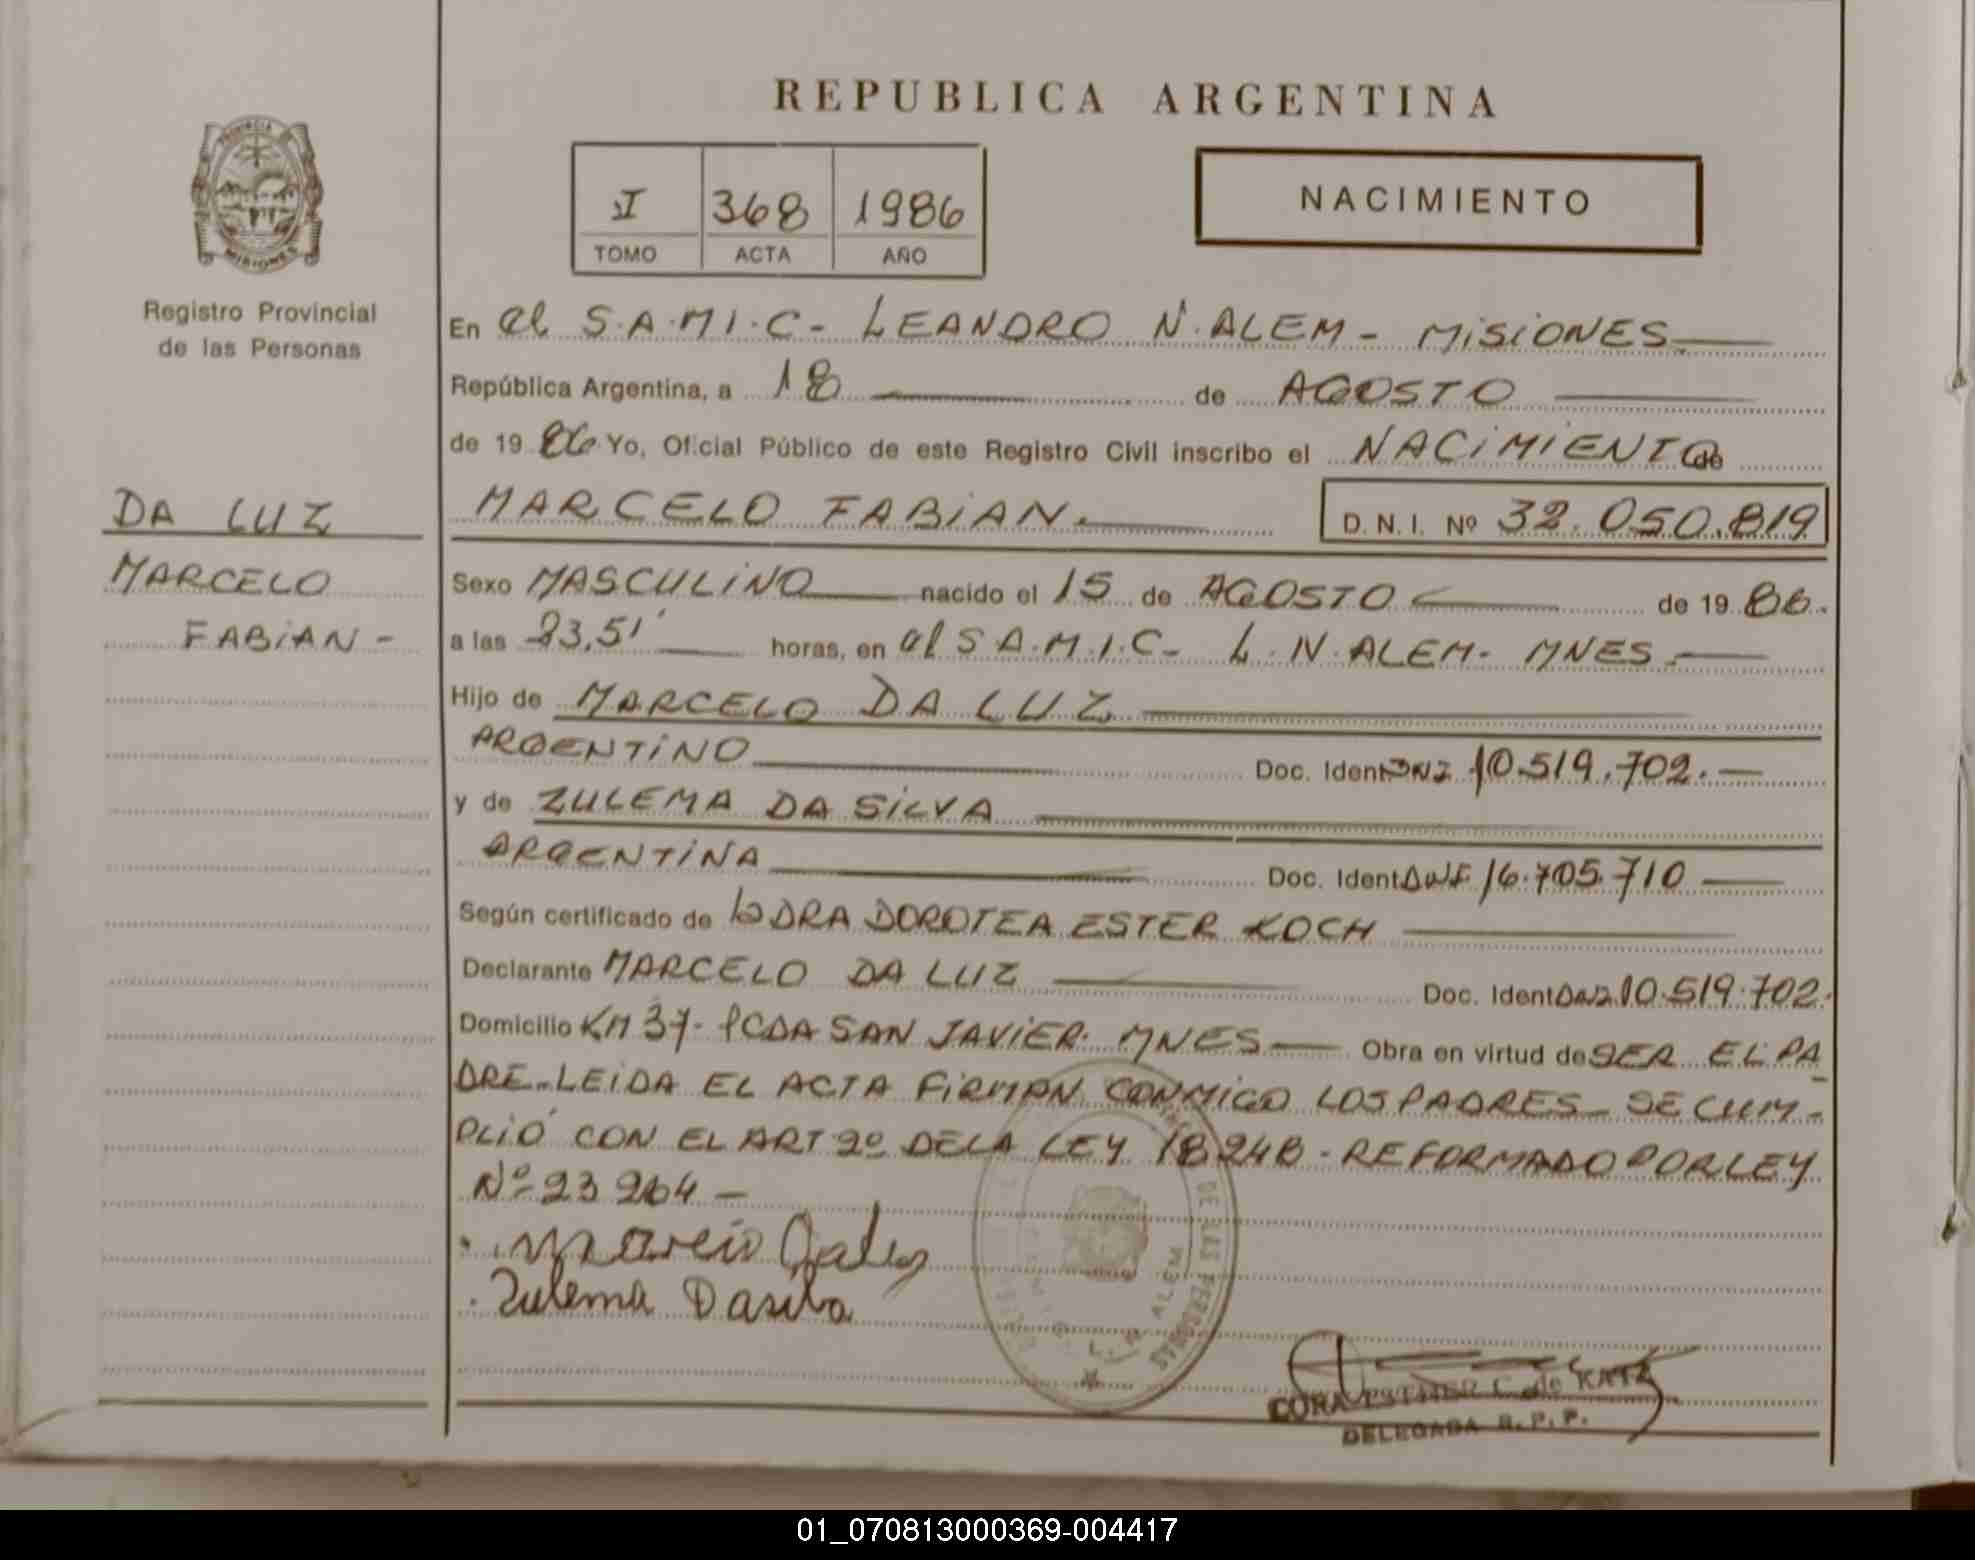 REPUBLICA ARGENTINA
PROVINCIA
MISIONES
Registro Provincial
de las Personas
I 368 1986
TOMO ACTA AÑO
NACIMIENTO
En el S.A.M.I.C- LEANDRO N.ALEM- MISIONES
República Argentina, a 18 de AGOSTO
de 1986 Yo, Oficial Público de este Registro Civil inscribo el NACIMIENTO de
MARCELO FABIAN. D. N. I. Nº 32.050.819
DA LUZ
MARCELO
FABIAN-
Sexo MASCULINO nacido el 15 de AGOSTO de 1986.
a las 23,51' horas, en el S A.M.I.C- L.N.ALEM- MNES.
Hijo de MARCELO DA LUZ
ARGENTINO Doc. Ident DNI 10.519.702.-
y de ZULEMA DA SILVA
ARGENTINA Doc. Ident DNI 16.705.710
Según certificado de la DRA DOROTEA ESTER KOCH
Declarante MARCELO DA LUZ Doc. Ident DNI 10.519.702.
Domicilio KM 37- PCDA SAN JAVIER. MNES Obra en virtud de SER EL PA
DRE-LEIDA EL ACTA FIRMAN CONMIGO LOS PADRES- SE CUM-
PLIÓ CON EL ART 2º DE LA LEY 18248-REFORMADO POR LEY
Nº 23264-
Zulema Dasilva
DE LAS PERSONAS
L. N. ALEM
CORA ESTHER C. de KATZ
DELEGADA R. P. P.
01_070813000369-004417